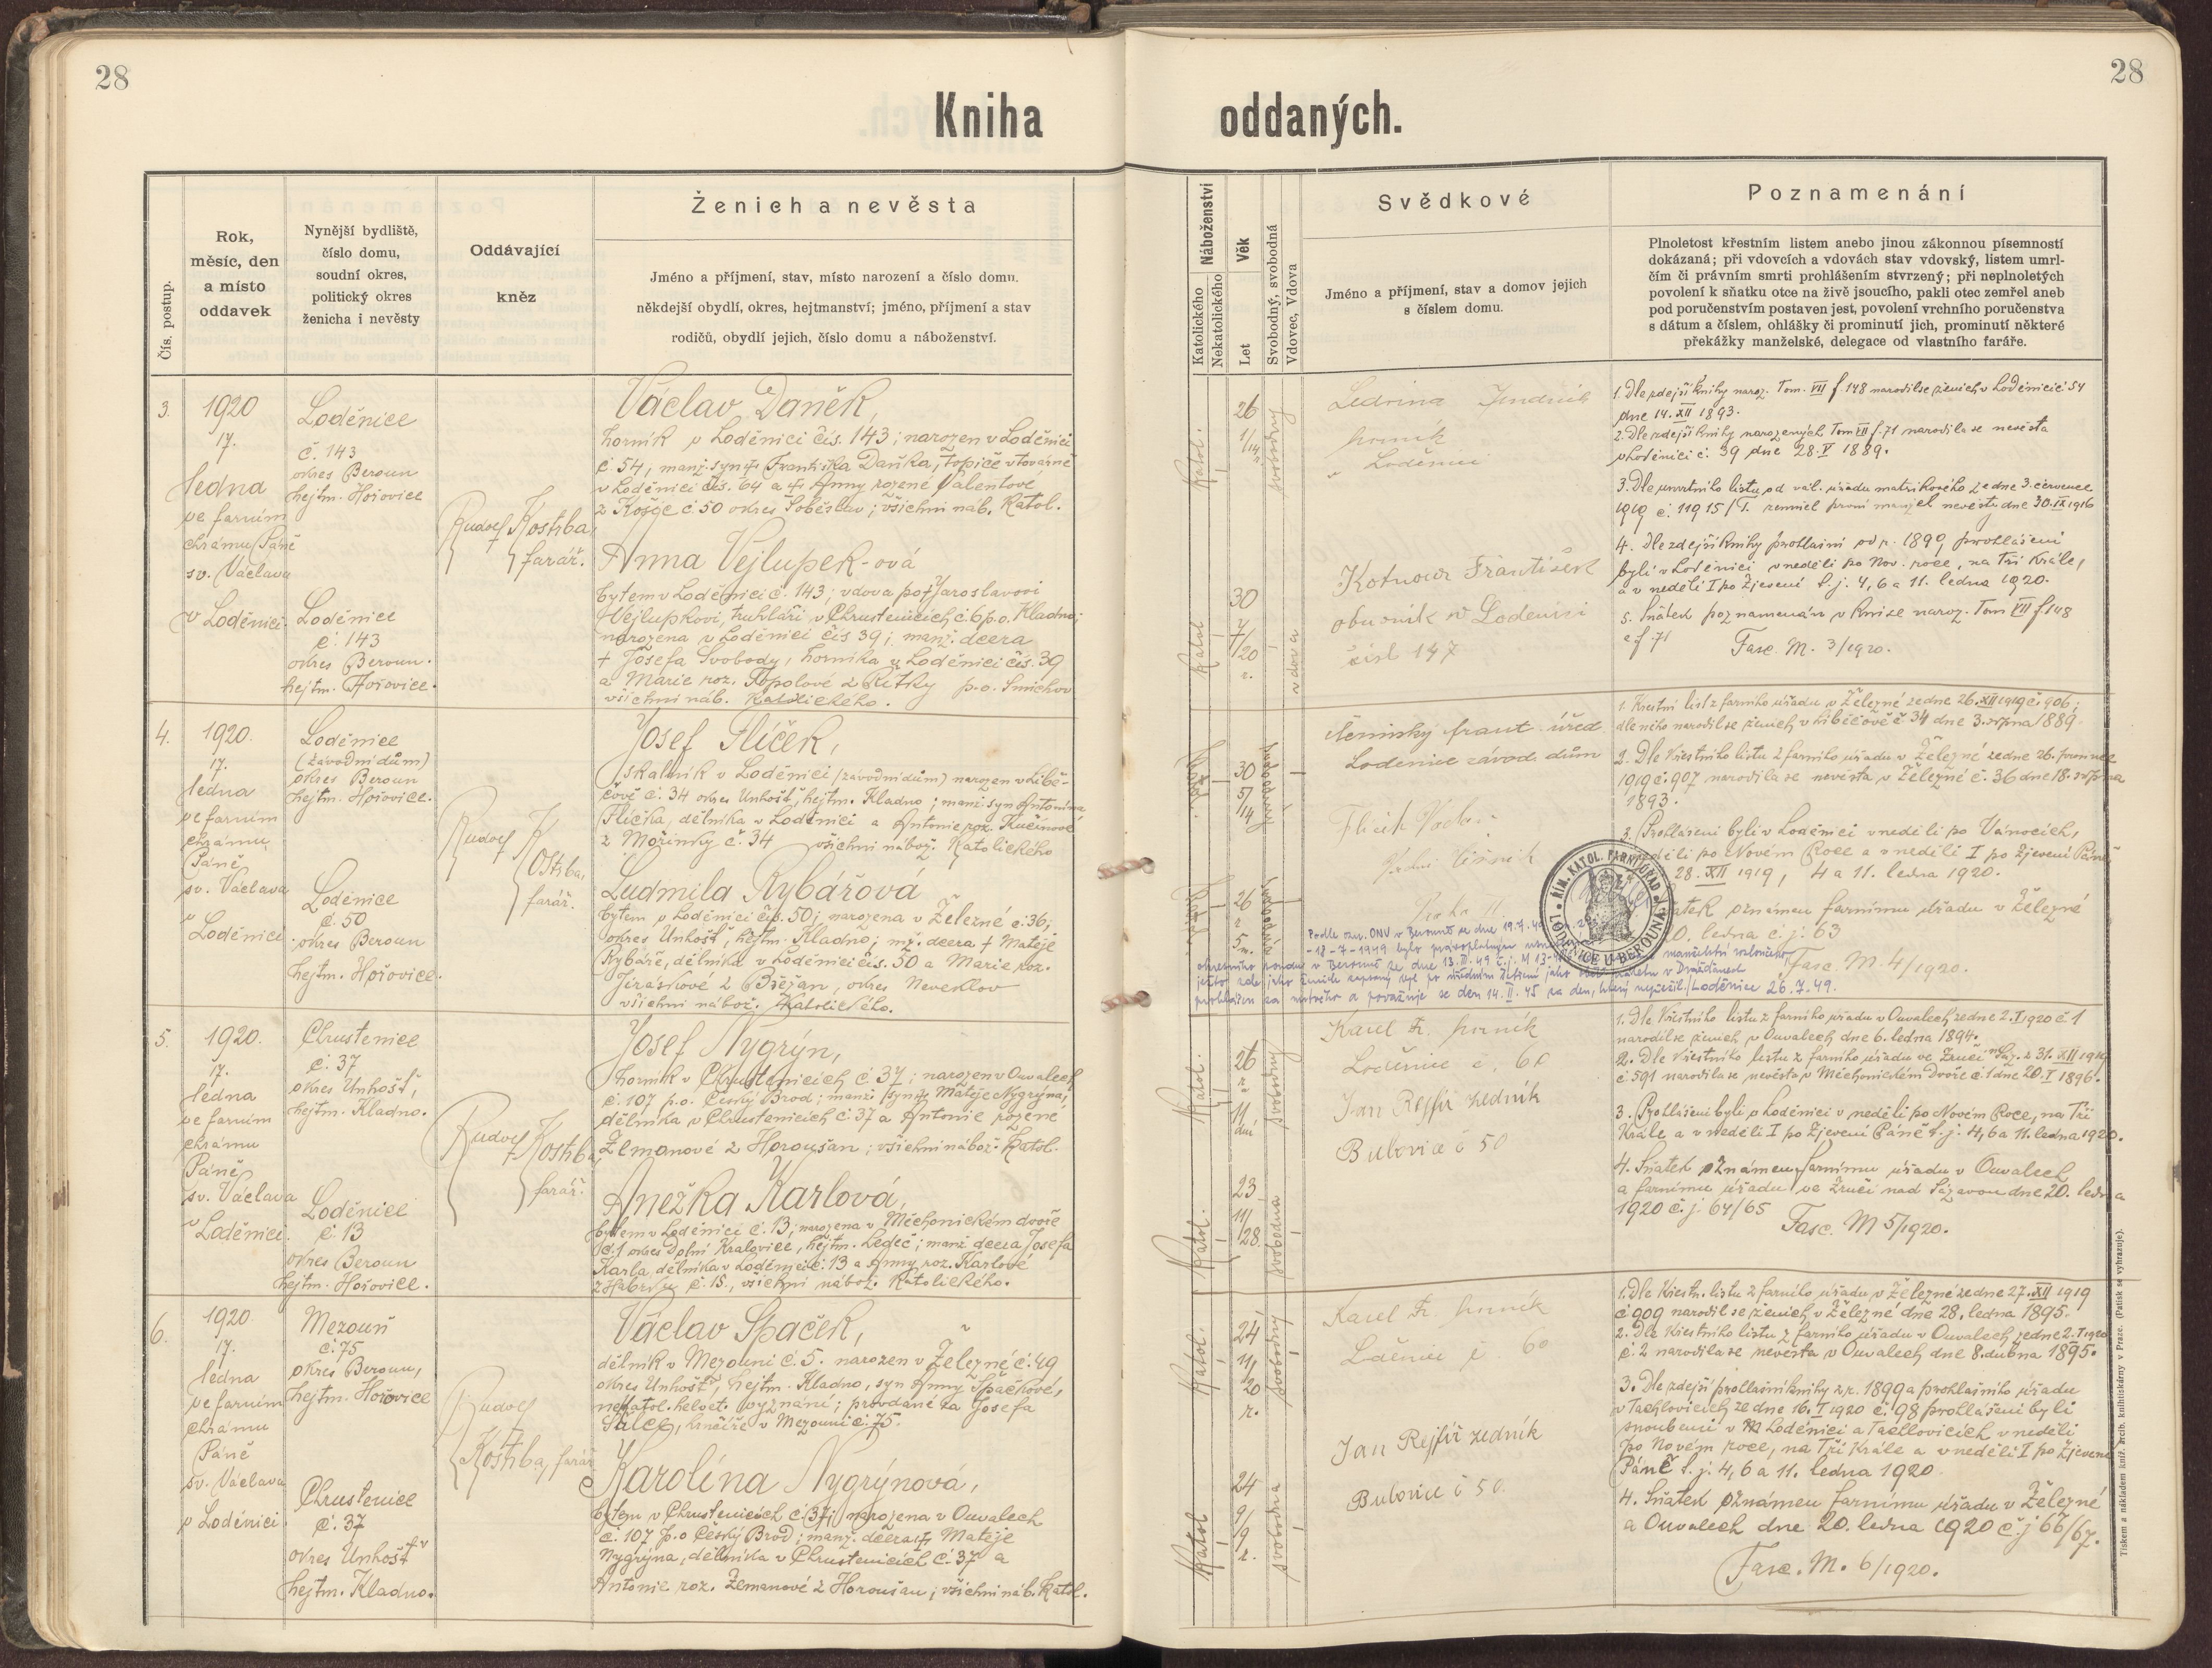 28
28
Kniha oddaných.
Čís. postup.
Rok,
měsíc, den
a místo
oddavek
Nynější bydliště,
číslo domu,
soudní okres,
politický okres
ženicha i nevěsty
Oddávající
kněz
Ženich a nevěsta
Jméno a příjmení, stav, místo narození a číslo domu.
někdejší obydlí, okres, hejtmanství; jméno, příjmení a stav
rodičů, obydlí jejich, číslo domu a náboženství.
Náboženství
Katolického
Nekatolického
Věk
Let
Svobodný, svobodná
Vdovec, Vdova
Svědkové
Jméno a příjmení, stav a domov jejich
s číslem domu.
Poznamenání
Plnoletost křestním listem anebo jinou zákonnou písemností
dokázaná; při vdovcích a vdovách stav vdovský, listem umrl-
čím či právním smrti prohlášením stvrzený; při neplnoletých
povolení k sňatku otce na živě jsoucího, pakli otec zemřel aneb
pod poručenstvím postaven jest, povolení vrchního poručenstva
s dátum a číslem, ohlášky či prominutí jich, prominutí některé
překážky manželské, delegace od vlastního faráře.
3.
1920
17.
ledna
ve farním
chrámu Páně
sv. Václava
v Loděnici.
Loděnice
č. 143
okres Beroun
hejtm. Hořovice
Loděnice
č. 143
okres Beroun.
hejtm. Hořovice.
Rudolf Kostrba,
farář.
Václav Daněk,
horník v Loděnici čís. 143; narozen v Loděnici
č 54, manž. syn Františka Daňka, topiče v továrně
v Loděnici čís. 64 a Anny rozené Valentové
z Košic č. 50 okres Soběslav; všichni náb. Katol.
Anna Vejlupek-ová
bytem v Loděnici č. 143; vdova po Jaroslavovi
Vejlupkovi, truhláři v Chrustenicích č. 6 p.o. Kladno;
narozena v Loděnici čís 39; manž. dcera
† Josefa Svobody, horníka v Loděnici čís. 39
a Marie roz. Topolové p.o. Smíchov
všichni náb. Katolického.
Katol.
26
1/14
svobodný
Katol
30
7/20
r.
vdova
Jindřich
horník
v Loděnici
František
obuvník v Loděnici
čísl 147
1. Dle zdejší knihy naroz. Tom. VII f 148 narodil se ženich v Loděnici č 54
dne 14. XII 1893.
2. Dle zdejší knihy narozených Tom VII f. 71 narodila se nevěsta
v Loděnici č. 39 dne 28. V 1889.
3. Dle úmrtního listu od vál. úřadu matrikového ze dne 3. července
1919 č. 11915/I. zemřel první manžel nevěsty dne 30. 1916
4. Dle zdejší knihy prohlášní od r. 1899 prohlášeni
byli v Loděnici v neděli po Nov. roce, na Tři Krále,
a v neděli I po Zjevení t. j. 4, 6 a 11. ledna 1920.
5. Sňatek poznamenán v knize naroz. Tom VII f 148
a f. 71
Fasc. M. 3/1920.
4.
1920.
17.
ledna
ve farním
chrámu
Páně
sv. Václava
v
Loděnici
Loděnice
(závodní dům)
okres Beroun
hejtm. Hořovice.
Loděnice
č. 50
okres Beroun
hejtm. Hořovice.
Rudolf Kostrba,
farář.
Josef Flíček,
skalník v Loděnici (závodní dům) narozen v Libě-
čově č. 34 okres Unhošť, hejtm. Kladno; manž. syn Antonína
Flíčka, dělníka v Loděnici a Antonie roz. Kučerové
z Mořinky č. 34 všichni nábož. Katolického
Ludmila Rybářová
bytem v Loděnici čís. 50; narozena v Železné č. 36;
okres Unhošť, hejtm. Kladno; mž. dcera † Matěje
Rybáře, dělníka v Loděnici čís. 50 a Marie roz.
Jiraskové z Břežan, okres Neveklov
všichni nábož. Katolického.
30
5/14
26
r
5
úřed
Loděnice závod. dům
Flíček
1. Křestní list z farního úřadu v Železné ze dne 26. XII 1919 č. 906;
dle něho narodil se ženich v Liběčově č 34 dne 3. srpna 1889.
2. Dle křestního listu z farního úřadu v Železné ze dne 26. prosince
1919 č. 907 narodila se nevěsta v Železné č. 36 dne 18. srpna
1893.
3. Prohlášeni byli v Loděnici v neděli po Vánocích,
neděli po Novém Roce a v neděli I po Zjevení Páně
28. XII 1919, 4 a 11. ledna 1920.
oznámen farnímu úřadu v Železné
20. ledna č. j. 63
Fasc. M. 4/1920.
ŘÍM. KATOL. FARNÍ ÚŘAD
LODĚNICE U BEROUNA
Podle ONV v Berouně ze dne 19.7.49
-18-7-1949 bylo pravoplatným
okresního soudu v Berouně ze dne 13. 49 č.j. M 13- manželství rozloučeno
ježto zde jako ženich zapsaný byl po
prohlášen za mrtvého a považuje se den 14. II. 45 za den, který nepřežil. Loděnice 26.7.49.
5.
1920.
17.
ledna
ve farním
chrámu
Páně
sv. Václava
v Loděnici.
Chrustenice
č. 37
okres Unhošť,
hejtm. Kladno.
Loděnice
č. 13
okres Beroun
hejtm. Hořovice.
Rudolf Kostrba,
farář.
Josef Nygrýn,
horník v Chrustenicích č 37; narozen v Ouvalech
č. 107 p.o. Český Brod; manž. syn Matěje Nygrýna,
dělníka v Chrustenicích č. 37 a Antonie rozené
Zemanové z Horoušan; všichni nábož. Katol.
Anežka Karlová,
bytem v Loděnici č. 13; narozena v Měchonickém dvoře
č. 1 okres Dolní Kralovice, hejtm. Ledeč; manž. dcera Josefa
Karla dělníka v Loděnici č. 13 a Anny roz. Karlové
č. 15., všichni nábož. Katolického.
Katol.
26
r
11
dní
svobodný
Katol.
23
11/28
svobodna
Karel Fr. horník
Loděnice č. 60
Jan Rejfíř zedník
Bubovice č 50
1. Dle křestního listu z farního úřadu v Ouvalech ze dne 2. I 1920 č 1
narodil se ženich v Ouvalech dne 6. ledna 1894.
2. Dle křestního listu z farního úřadu ve Zruči n/Sáz. z 31. XII 1919
č 591 narodila se nevěsta v Měchonickém Dvoře č. 1 dne 20. I 1896.
3. Prohlášeni byli v Loděnici v neděli po Novém Roce, na Tři
Krále a v neděli I po Zjevení Páně t. j. 4, 6 a 11. ledna 1920.
4. Sňatek oznámen farnímu úřadu v Ouvalech
a farnímu úřadu ve Zruči nad Sázavou dne 20. ledna
1920 č. j. 64/65
Fasc. M 5/1920.
6.
1920
17.
ledna
ve farním
chrámu
Páně
sv. Václava
v Loděnici
Mezouň
č. 75
okres Beroun,
hejtm. Hořovice
Chrustenice
č. 37
okres Unhošť
hejtm. Kladno.
Rudolf
Kostrba, farář
Václav Špaček,
dělník v Mezouni č. 5. narozen v Železné č. 49
okres Unhošť, hejtm. Kladno, syn Anny Špačkové,
nekatol. helvet. vyznání; provdané za Josefa
v Mezouni č. 75.
Karolína Nygrýnová,
bytem v Chrustenicích č. 37; narozena v Ouvalech
č. 107 p.o Český Brod; manž. dcera Matěje
Nygrýna, dělníka v Chrustenicích č. 37 a
Antonie roz. Zemanové z Horoušan; všichni náb. Katol.
Katol.
24
11/20
r.
svobodný
Katol
24
9/9
r.
svobodna
Karel Fr. horník
č. 60
Jan Rejfíř zedník
Bubovice č 50.
1. Dle křestn. listu z farního úřadu v Železné ze dne 27. XII 1919
č 909 narodil se ženich v Železné dne 28. ledna 1895.
2. Dle křestního listu z farního úřadu v Ouvalech ze dne 2. I 1920
č. 2 narodila se nevěsta v Ouvalech dne 8. dubna 1895.
3. Dle zdejší prohlašní knihy z r. 1899 a prohlašního úřadu
v Tachlovicích ze dne 16. I 1920 č. 98 prohlášeni byli
snoubenci v Loděnici a Tachlovicích v neděli
po Novém roce, na Tři Krále a v neděli I po Zjevení
Páně t. j. 4, 6 a 11. ledna 1920.
4. Sňatek oznámen farnímu úřadu v Železné
a Ouvalech dne 20. ledna 1920 č. j 66/67.
Fasc. M. 6/1920.
Tiskem a nákladem kníž. arcib. knihtiskárny v Praze. (Patisk se vyhrazuje).